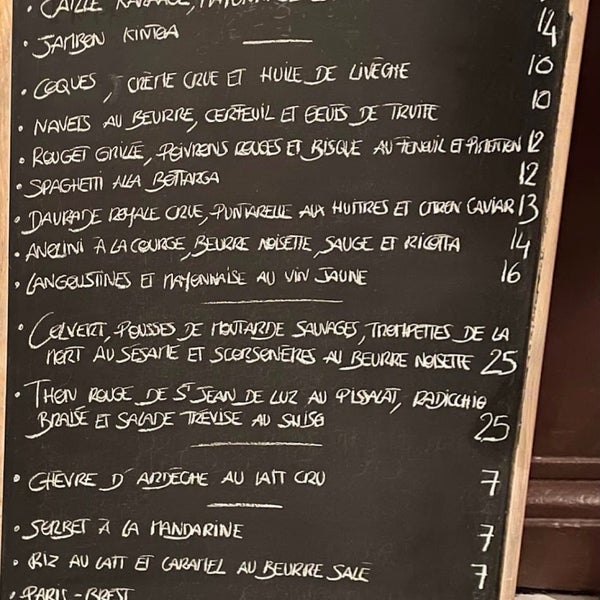 · CAILLE
· JAMBON KINTOA 14
· COQUES, CRÈME CRUE ET HUILE DE LIVÈCHE 10
· NAVETS AU BEURRE, CERFEUIL ET OEUFS DE TRUITE 10
· ROUGET GRILLÉ, POIVRONS ROUGES ET BISQUE AU FENOUIL ET PIMENTON 12
· SPAGHETTI ALLA BOTTARGA 12
· DAURADE ROYALE CRUE, PUNTARELLE AUX HUITRES ET CITRON CAVIAR 13
· ANOLINI À LA COURGE, BEURRE NOISETTE, SAUGE ET RICOTTA 14
· LANGOUSTINES ET MAYONNAISE AU VIN JAUNE 16
· COLVERT, POUSSES DE MOUTARDE SAUVAGES, TROMPETTES DE LA
MORT AU SÉSAME ET SCORSONÈRES AU BEURRE NOISETTE 25
· THON ROUGE DE ST JEAN DE LUZ AU PISSALAT, RADICCHIO
BRAISÉ ET SALADE TRÉVISE AU SHISO 25
· CHÈVRE D'ARDÈCHE AU LAIT CRU 7
· SORBET À LA MANDARINE 7
· RIZ AU LAIT ET CARAMEL AU BEURRE SALÉ 7
· PARIS-BREST